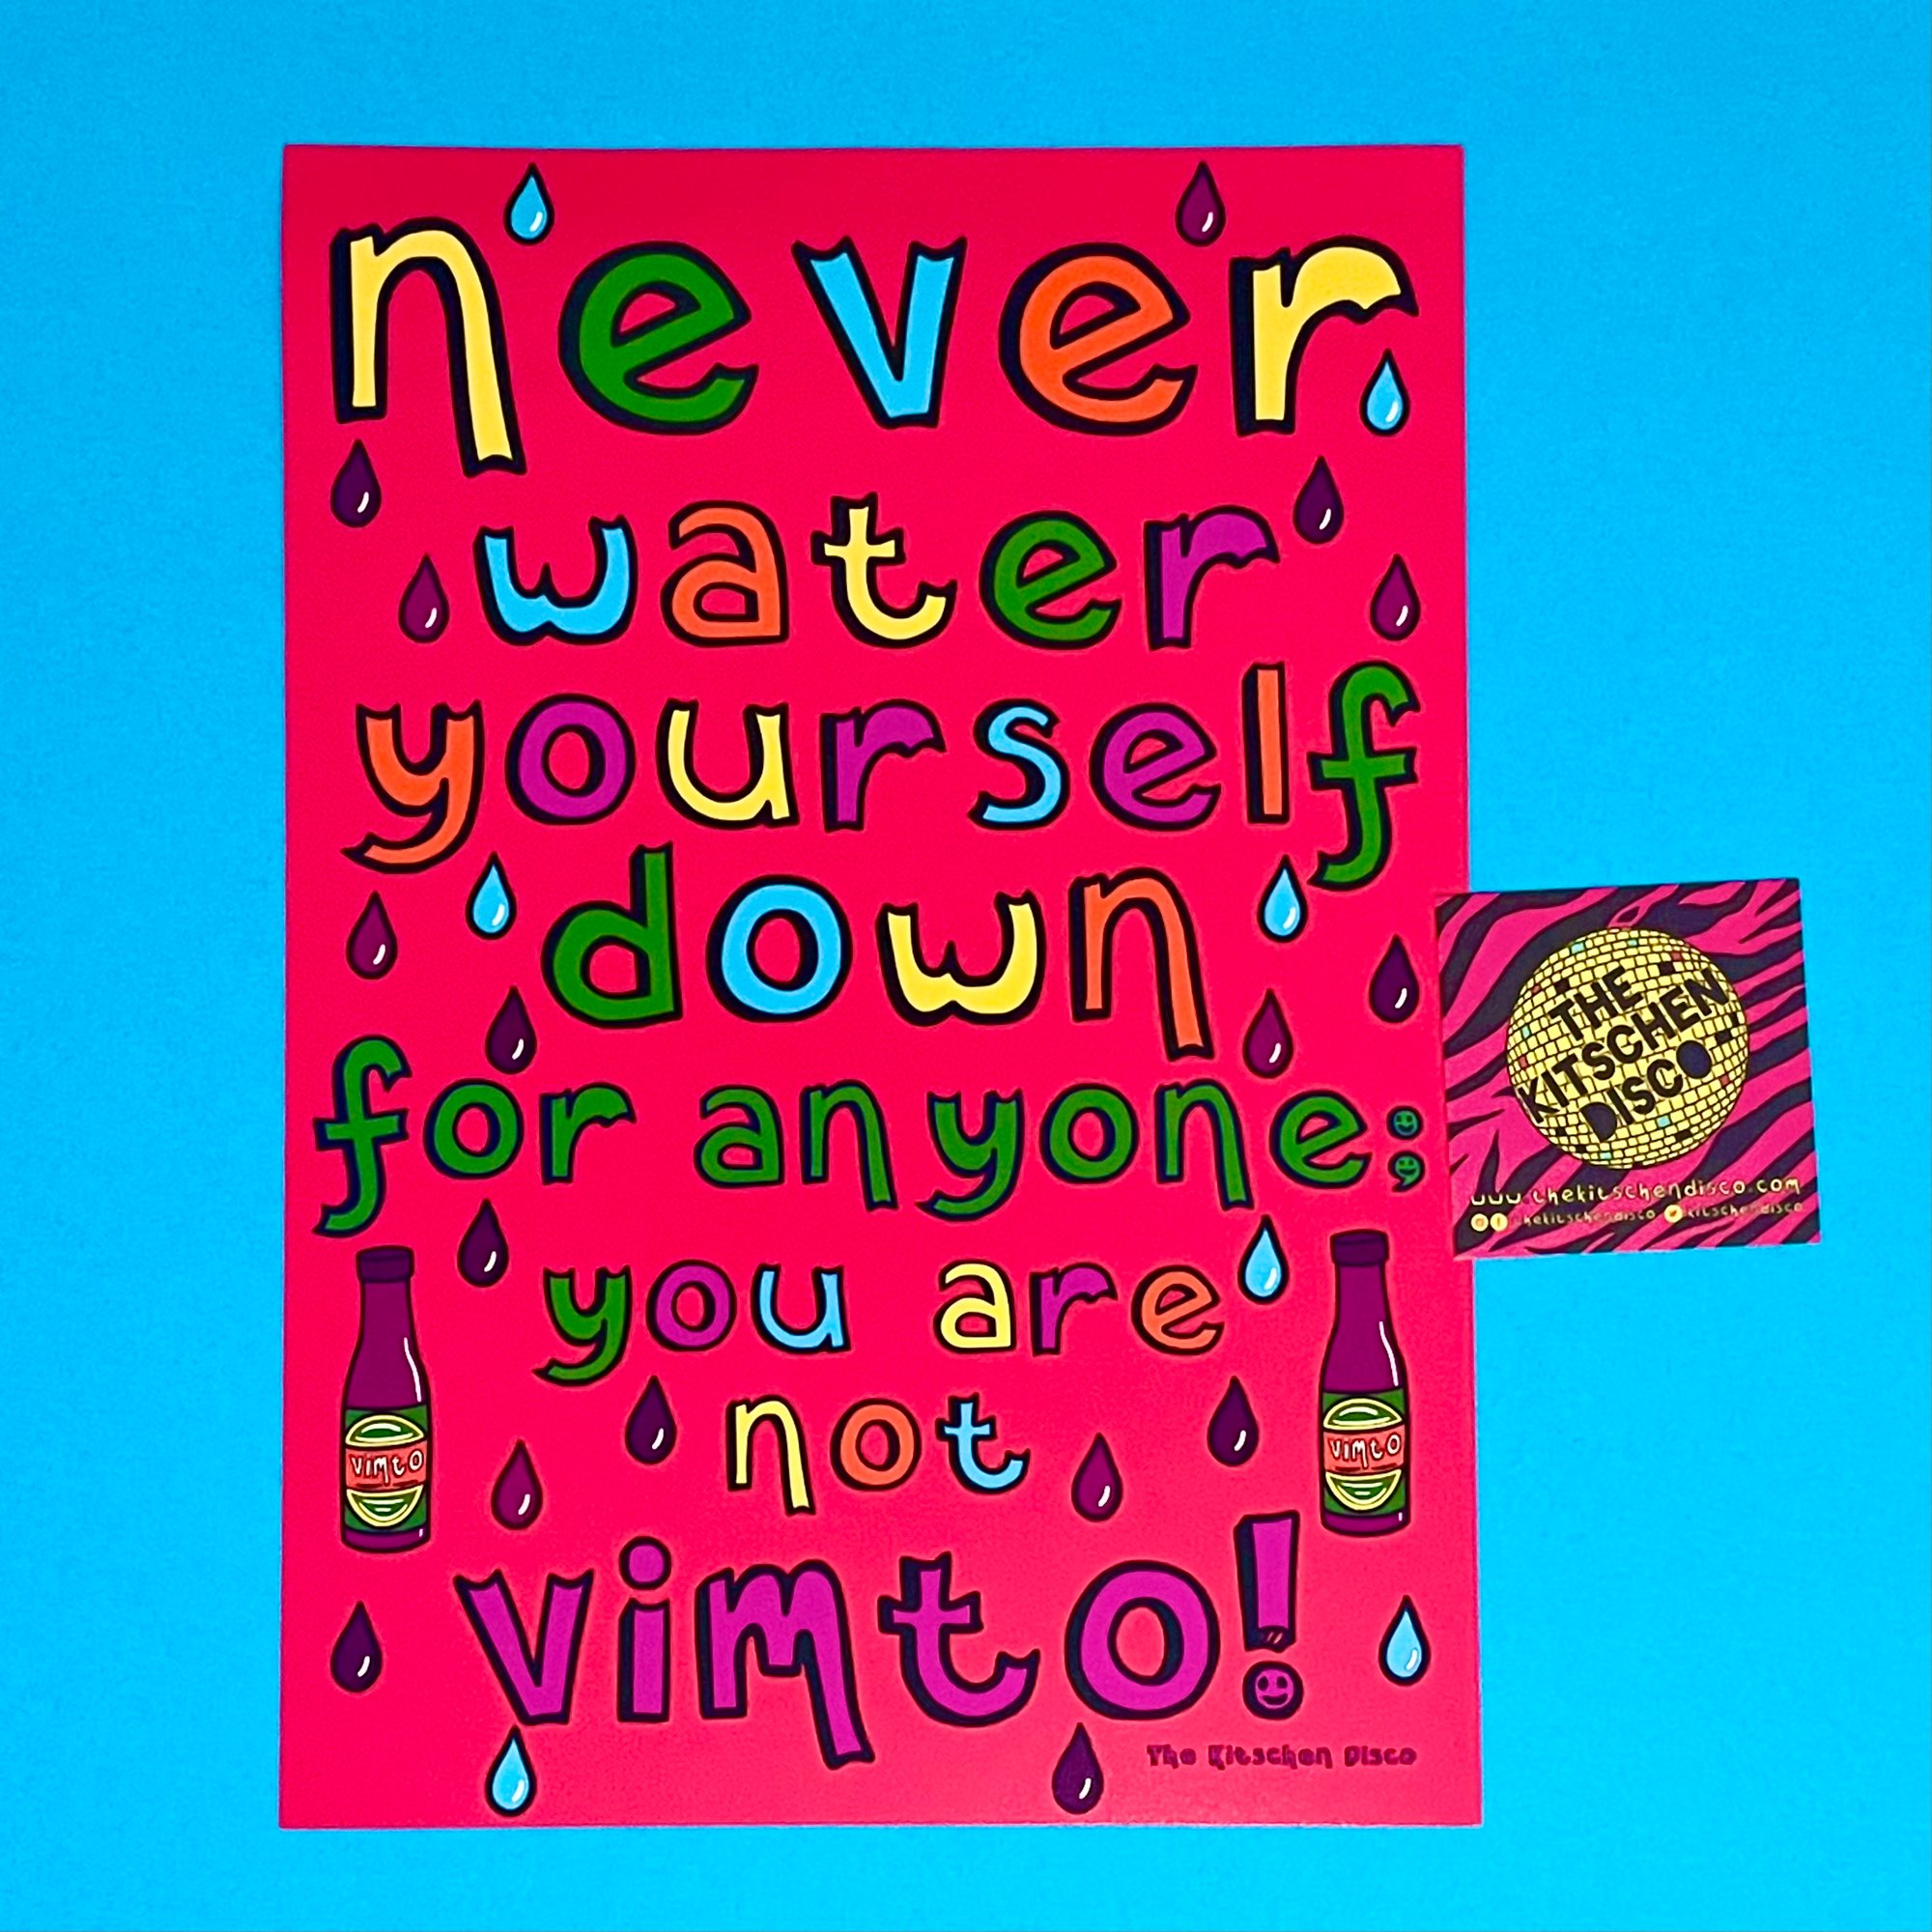 never
water
yourself
down
for anyone;
you are
not
vimto!
vimto
vimto
The Kitschen Disco
THE
KITSCHEN
DISCO
www.thekitschendisco.com
thekitschendisco kitschendisco